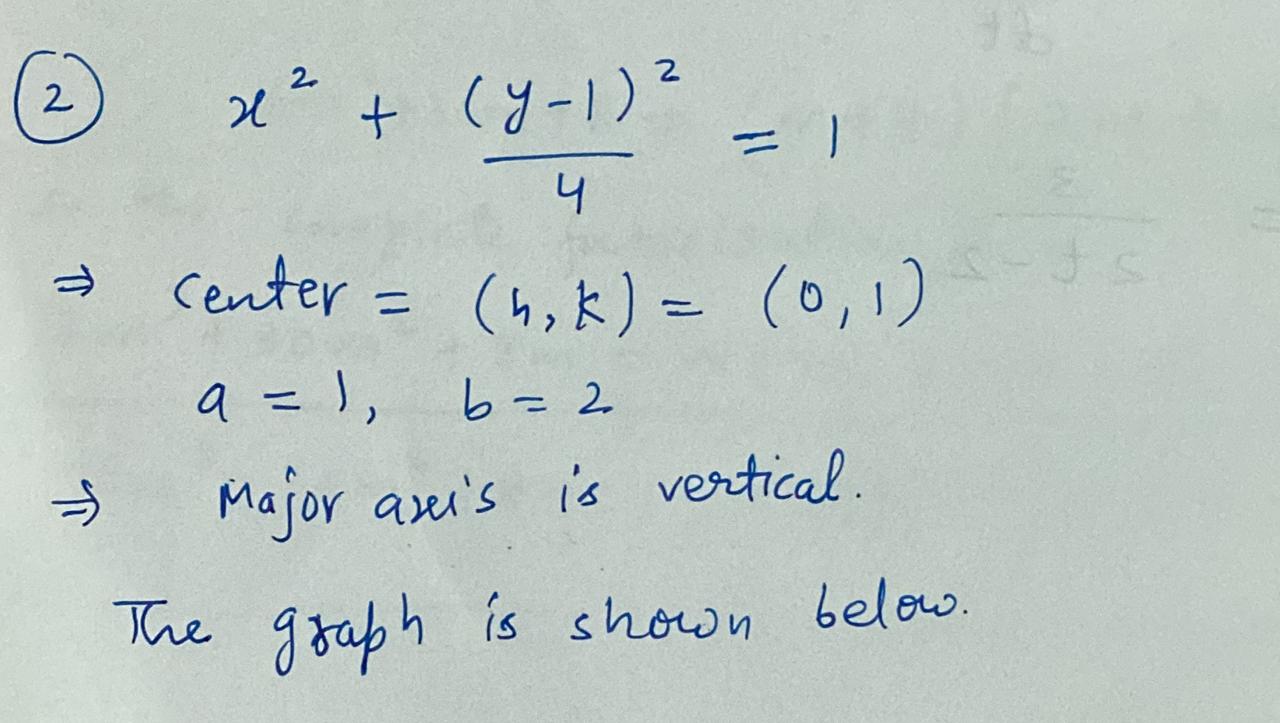 ② x² + (y-1)²/4 = 1
⇒ center = (h, k) = (0, 1)
a = 1, b = 2
⇒ Major axis is vertical.
The graph is shown below.